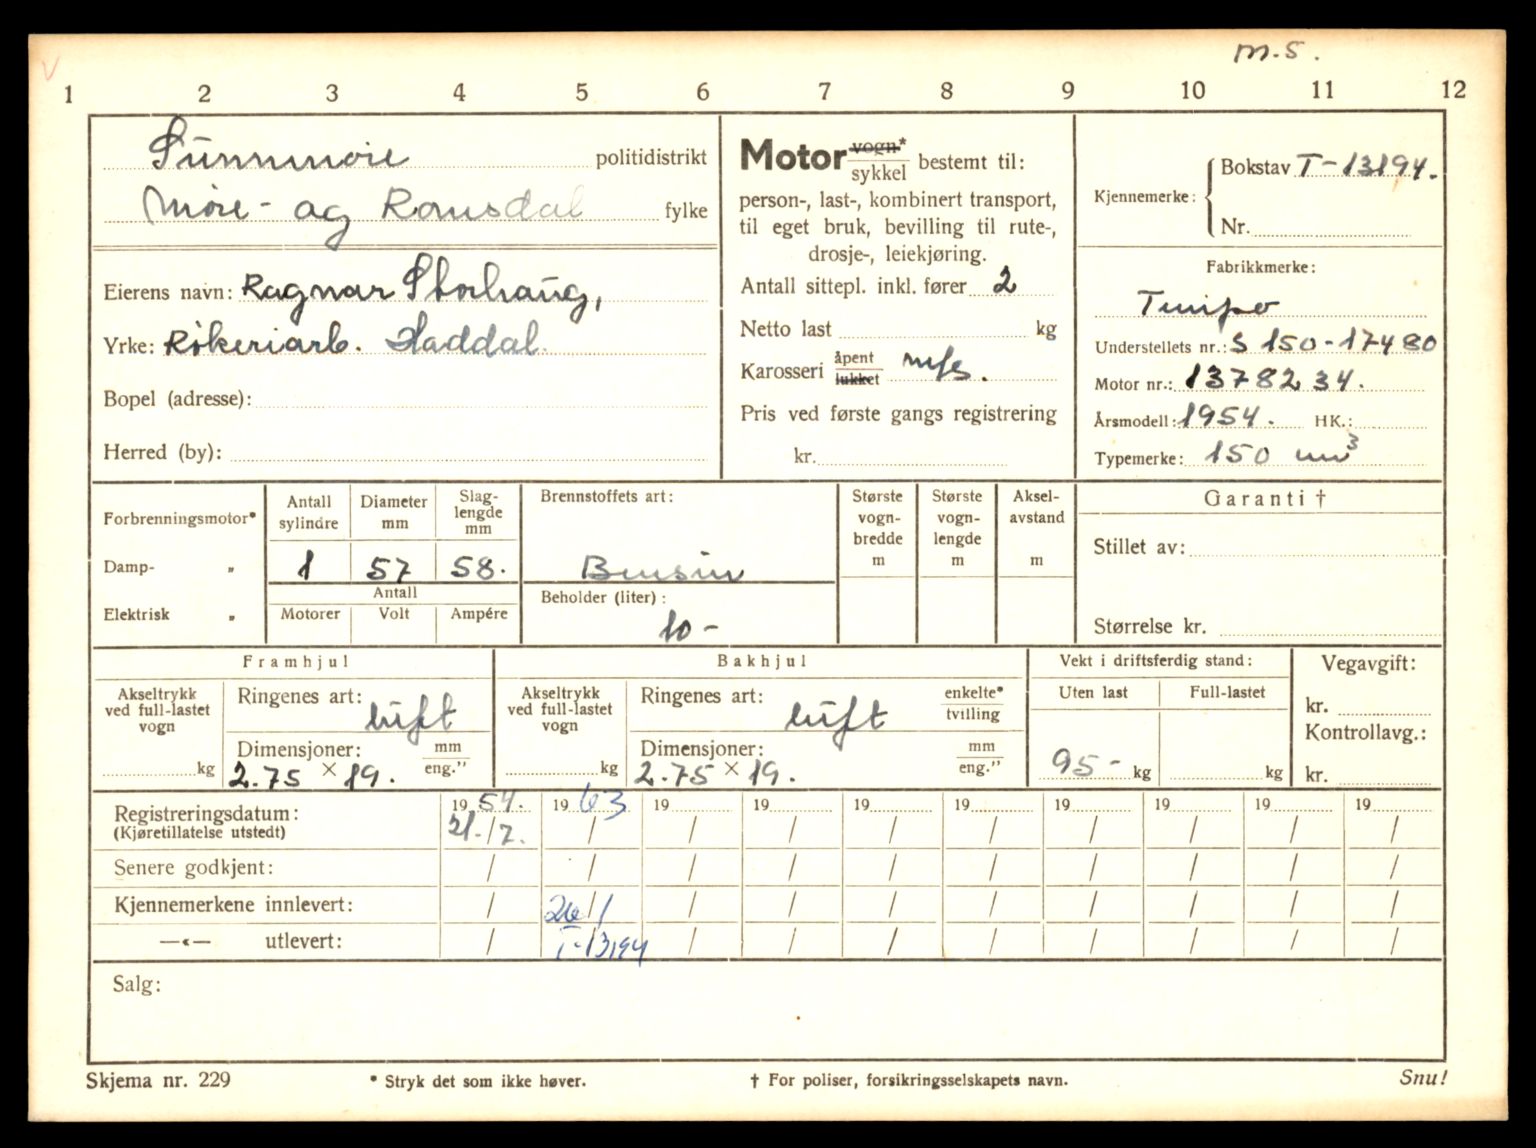 m.s.
1 2 3 4 5 6 7 8 9 10 11 12
Sunnmøre politidistrikt
Møre- og Romsdal fylke
Eierens navn: Ragnar Storhaug,
Yrke: Røkeriarb. Haddal.
Bopel (adresse):
Herred (by):
Motor vogn* / sykkel bestemt til:
person-, last-, kombinert transport,
til eget bruk, bevilling til rute-,
drosje-, leiekjøring.
Antall sittepl. inkl. fører 2
Netto last kg
Karosseri åpent / lukket m/s.
Pris ved første gangs registrering
kr.
Kjennemerke: Bokstav T-13194.
Nr.
Fabrikkmerke:
Tempo
Understellets nr.: S 150-17480
Motor nr.: 1378234.
Årsmodell: 1954. HK.:
Typemerke: 150 cm³
Forbrenningsmotor*
Damp- „
Elektrisk „
Antall sylindre Diameter mm Slaglengde mm
1 57 58.
Antall
Motorer Volt Ampére
Brennstoffets art:
Bensin
Beholder (liter):
10-
Største vognbredde m
Største vognlengde m
Akselavstand m
Garanti †
Stillet av:
Størrelse kr.
Framhjul
Akseltrykk ved full-lastet vogn kg
Ringenes art: luft
Dimensjoner: mm / eng."
2.75 × 19.
Bakhjul
Akseltrykk ved full-lastet vogn kg
Ringenes art: luft enkelte* / tvilling
Dimensjoner: mm / eng."
2.75 × 19.
Vekt i driftsferdig stand:
Uten last Full-lastet
95- kg kg
Vegavgift:
kr.
Kontrollavg.:
kr.
Registreringsdatum: 1954. 1963 19 19 19 19 19 19 19 19
(Kjøretillatelse utstedt) 21./7. / / / / / / / / /
Senere godkjent: / / / / / / / / / /
Kjennemerkene innlevert: / 26/1 / / / / / / / /
—«— utlevert: / T-13194 / / / / / / / /
Salg:
Skjema nr. 229 * Stryk det som ikke høver. † For poliser, forsikringsselskapets navn. Snu!